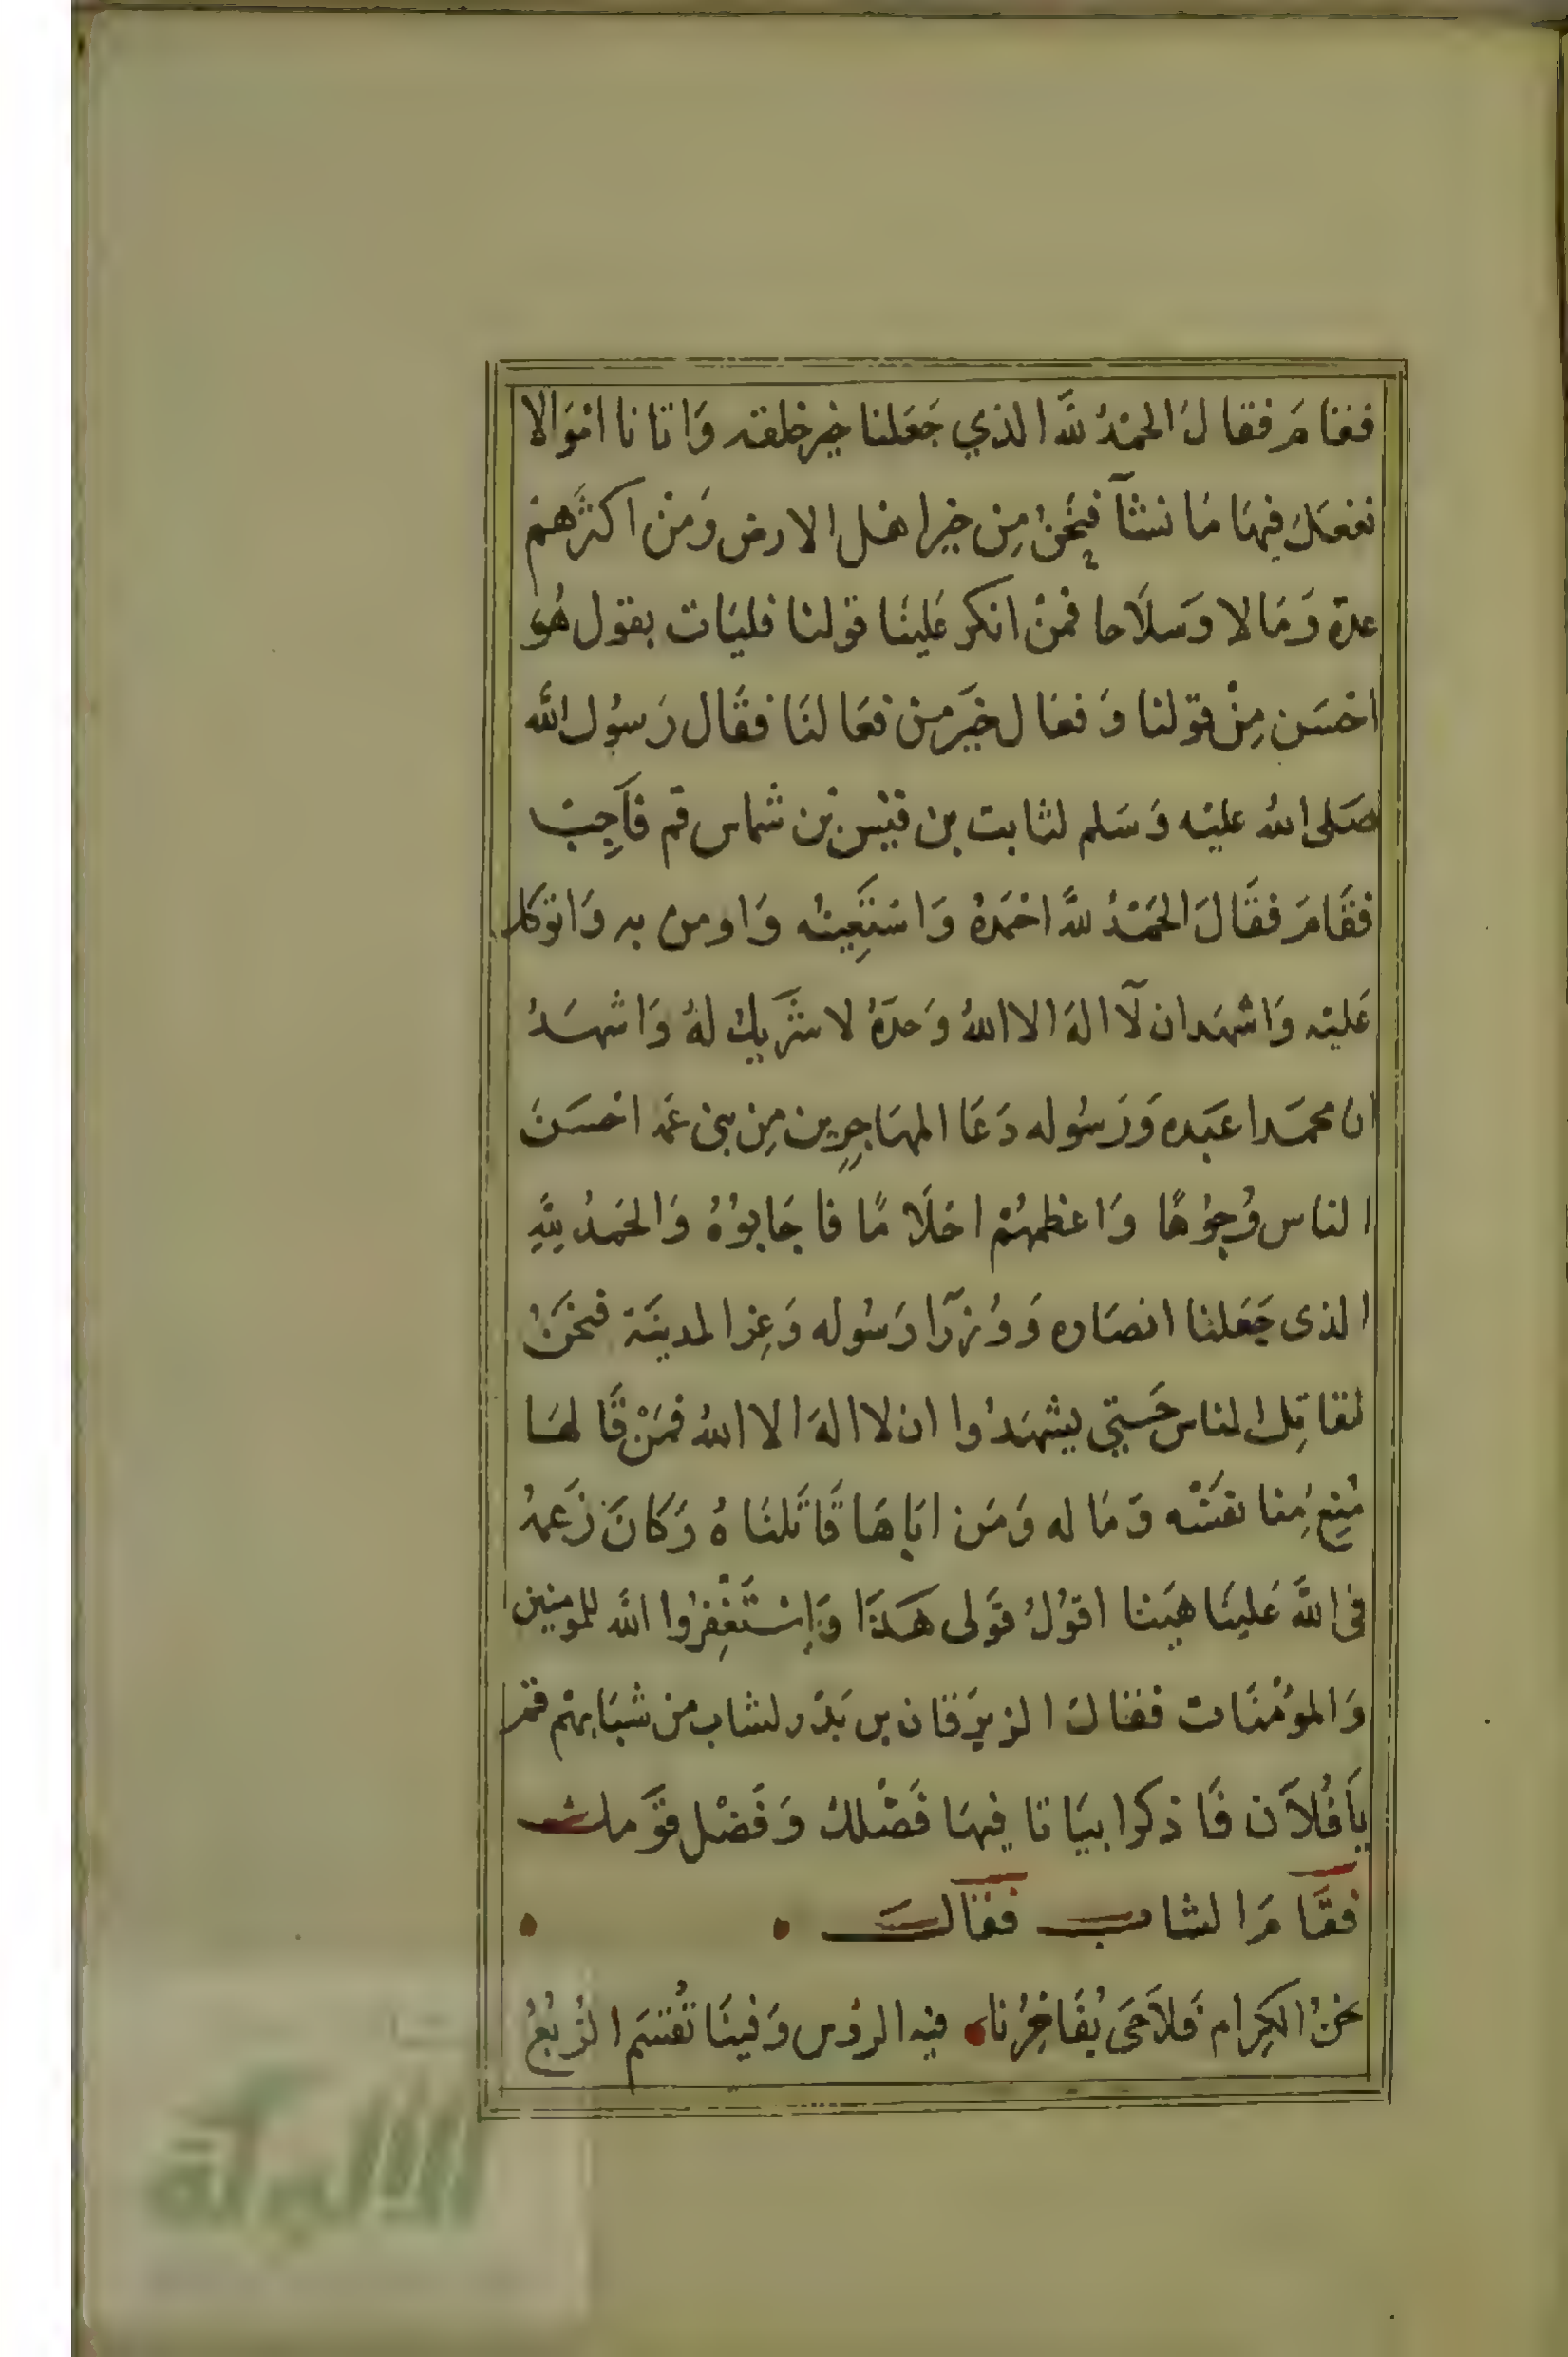 فقامَ فقالَ الحمْدُ للَّه الذي جَعَلنا خير خلقه وَاتانا امْوَالا
نفعَل فيهَا مَا نشآ فنَحْنُ مِن خير اهْل الارض وَمنْ اكثرَهمْ
عدة وَمَالا وَسلَاحا فمنْ انكر عَلينَا قولنا فليَات بقول هُوَ
احْسَن مِنْ قوْلنا وَفعَال خيرَ من فعَالنَا فقَال رَسوُل الله
صَلى اللهُ عليْه وَسَلم لثابت بن قيْس بْن شماس قم فَاَجِبْ
فقَامَ فقَالَ الحَمْدُ للَّه احْمَدهُ وَاسْتَعِينُه وَاومن به وَاتوَكل
عَليْه وَاشهَد ان لآ الهَ الا اللهُ وَحدَهُ لا شرَيكْ لهُ وَاشهَدُ
ان محمَدا عَبَده وَرَسُوله دَعَا المهَاجِرِين مِن بنى عَمه احْسَنَ
الناس وُجوُهًا وَاعظمهُمْ احْلَامًا فاجَابوُهُ وَالحَمدُ لِلَّهِ
الذى جَعَلنا انصَاره وَوُزرآ رَسُوله وَعِز المدينَة فنحَنُ
لنقاتِل الناس حَتيّ يشهَدُوا ان لا الهَ الا اللهُ فمَنْ قَالهَا
مُنِعَ مِنا نفسَه وَمَاله وَمَن ابَاهَا قَاتَلنَاهُ وَكَانَ رَغمهُ
فى اللَّه عَلينَا هيَنا اقوُلُ قوَلى هَذَا وَاِسْتَغْفِرُوا اللَّه للمومنين
وَالموُمْنَات فقالَ الزبرَقان بن بَدْر لشاب من شبَابهمْ قمْ
يَا فُلاَن فَاذكر ابيَاتا فيهَا فَضْلك وَفَضْل قوَمك
فقَامَ الشاب فقالَ
نحنُ الكِرام فَلاَ حَى يُفَاخِرُنا فيه الروُس وَفينَا تُقسَم الرُبُعُ